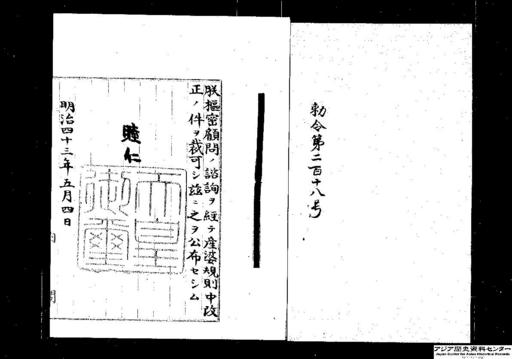 勅令第二百十八号
朕樞密顧問ノ諮詢ヲ経テ産婆規則中改
正ノ件ヲ裁可シ茲ニ之ヲ公布セシム
睦仁
天皇御璽
明治四十三年五月四日
内閣
アジア歴史資料センター
Japan Center for Asian Historical Records